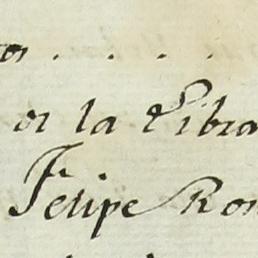 or la Libra
Felipe Ron